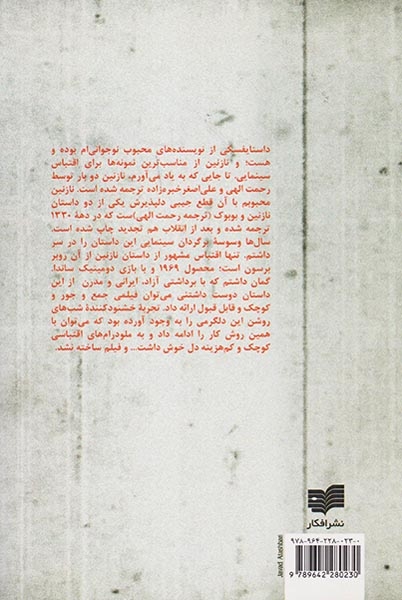 داستایفسکی از نویسنده‌های محبوب نوجوانی‌ام بوده و
هست؛ و نازنین از مناسب‌ترین نمونه‌ها برای اقتباس
سینمایی. تا جایی که به یاد می‌آورم، نازنین دو بار توسط
رحمت الهی و علی‌اصغر خبره‌زاده ترجمه شده است. نازنین
محبوبم با آن قطع جیبی دلپذیرش یکی از دو داستان
نازنین و بوبوک (ترجمه رحمت الهی)ست که در دههٔ ۱۳۳۰
ترجمه شده و بعد از انقلاب هم تجدید چاپ شده است.
سال‌ها وسوسهٔ برگردان سینمایی این داستان را در سر
داشتم. تنها اقتباس مشهور از داستان نازنین از آن روبر
برسون است؛ محصول ۱۹۶۹ و با بازی دومینیک ساندا.
گمان داشتم که با برداشتی آزاد، ایرانی و مدرن از این
داستان دوست داشتنی می‌توان فیلمی جمع و جور و
کوچک و قابل قبول ارائه داد. تجربهٔ خشنودکنندهٔ شب‌های
روشن این دلگرمی را به وجود آورده بود که می‌توان با
همین روش کار را ادامه داد و به ملودرام‌های اقتباسی
کوچک و کم‌هزینه دل خوش داشت... و فیلم ساخته نشد.
نشر افکار
۹۷۸-۹۶۴-۲۲۸-۰۲۳-۰
9 789642 280230
Javad Atashbari